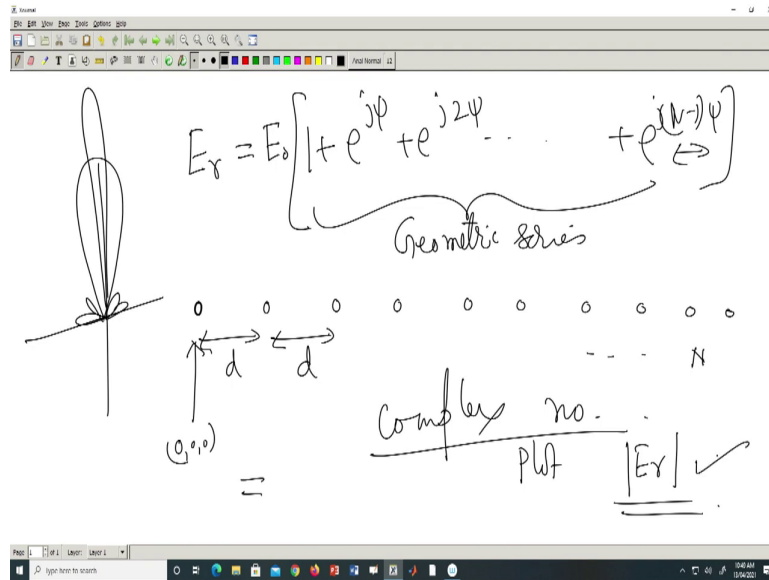 Xournal
File Edit View Page Tools Options Help
Arial Normal 12
E_r = E_0 [1 + e^{jψ} + e^{j2ψ} - - . + e^{j(N-1)ψ}]
Geometric series
d d - - - N
(0,0,0)
Complex no.
= Plot |Er| ✓
Page 1 of 1 Layer: Layer 1
Type here to search
10:40 AM
13/04/2021